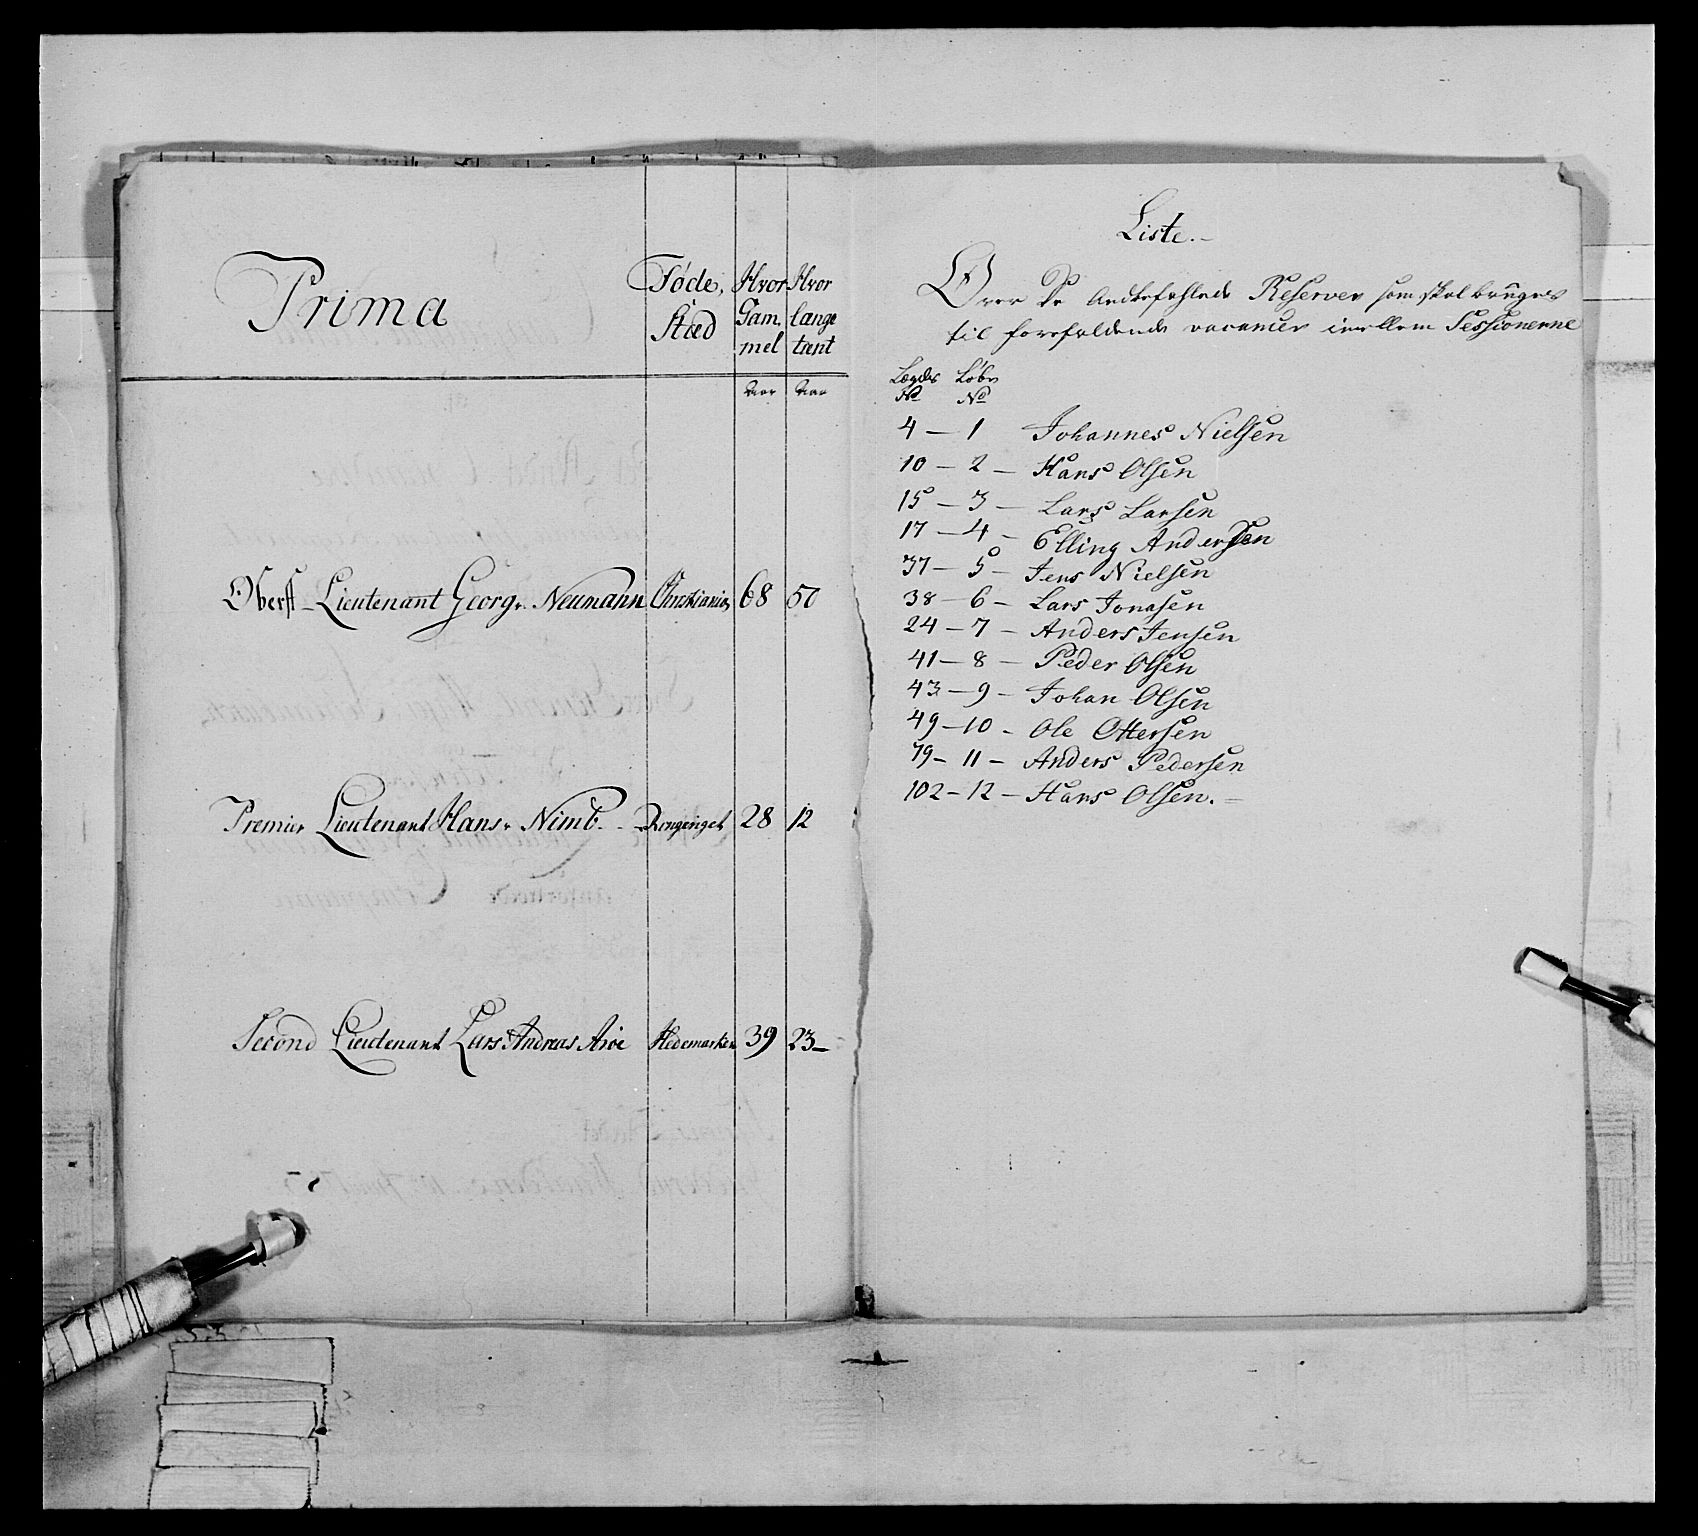 Prima
Føde,
Stæd
Hvor
Gam,
mel
Hvor
længe
tient
Aar
Aar
Oberst-Lieutenant Georg v. Neumann Christiania 68 50
Premier Lieutenant Hans v. Nimb. - Ringeriget 28 12
Second Lieutenant Lars Andreas Aroe Hedemarken 39 23-
Liste.-
Over De Andbefahlede Reserver som skal bruges
til forefaldende vacancer imellem Sessionerne
Lægdes Løbe
No No
4 - 1 Johannes Nielsen
10 - 2 - Hans Olsen
15 - 3 - Lars Larsen
17 - 4 - Elling Andersen
37 - 5 - Jens Nielsen
38 - 6 - Lars Jonasen
24 - 7 - Anders Jensen
41 - 8 - Peder Olsen
43 - 9 - Johan Olsen
49 - 10 - Ole Ottersen
79 - 11 - Anders Pedersen
102 - 12 - Hans Olsen.-